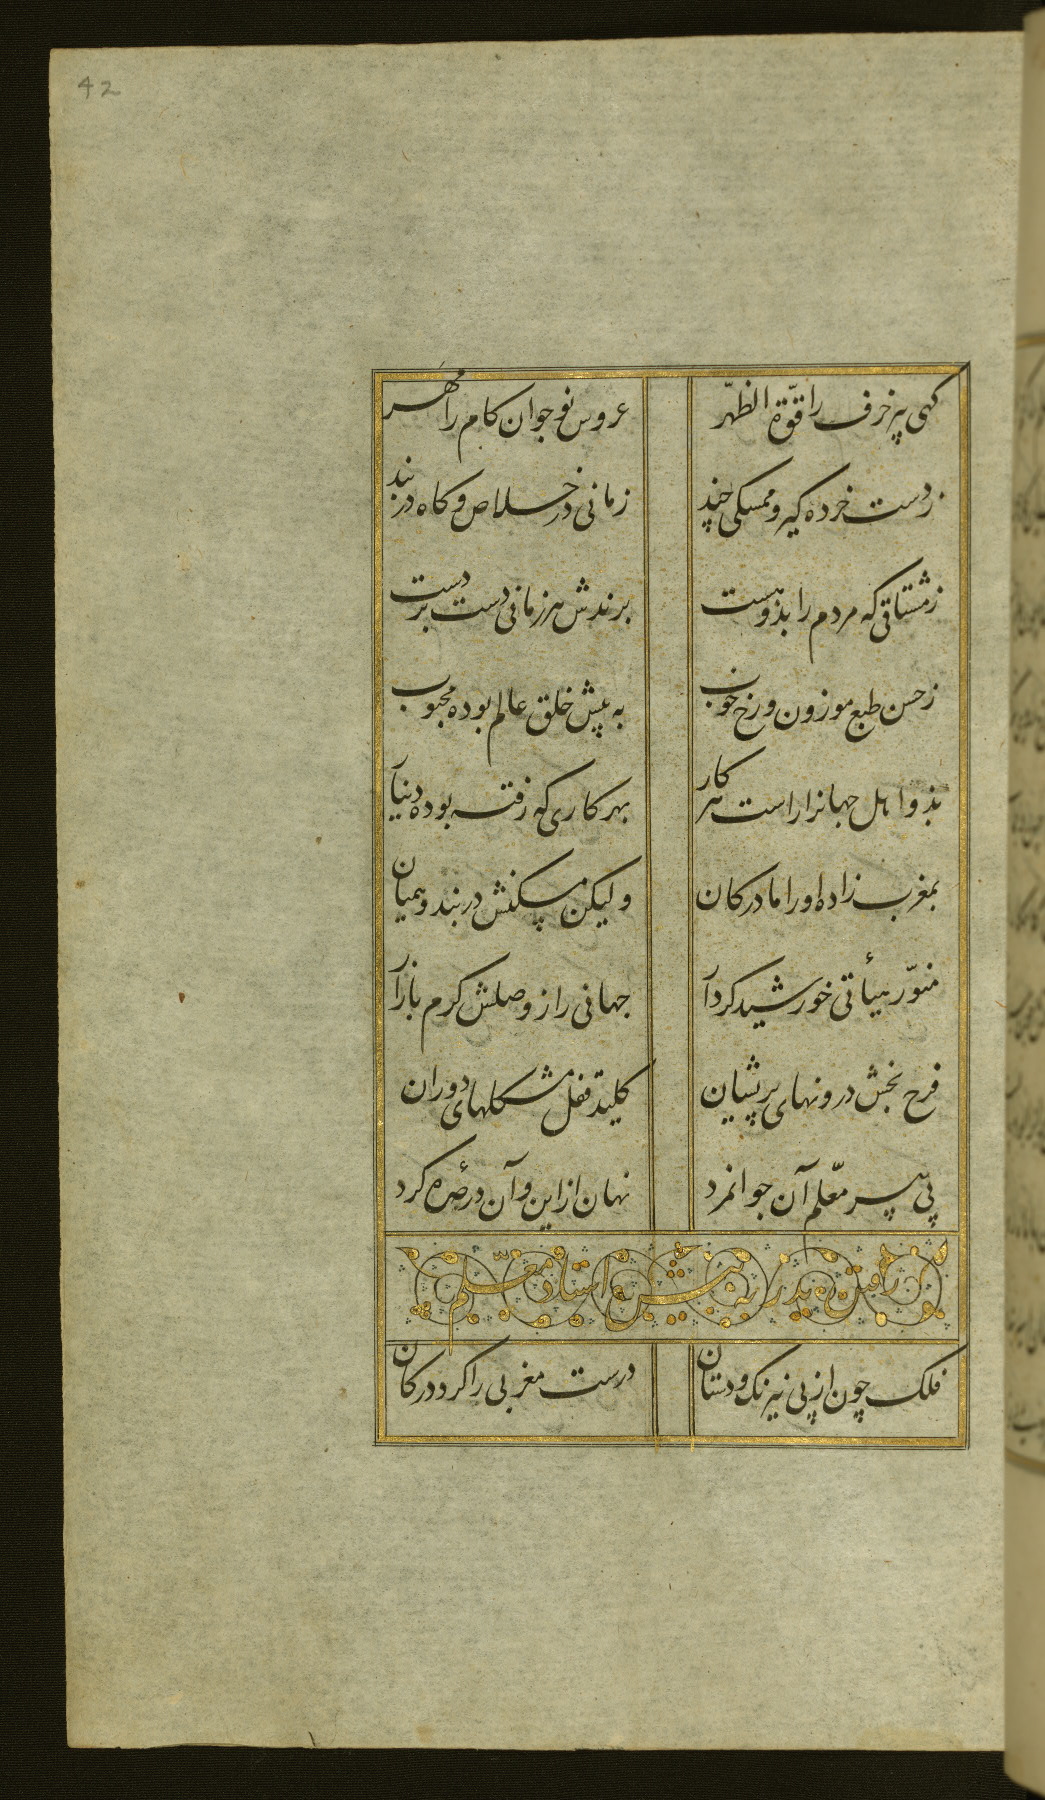 42
کهی پیر خرف را قوّة الظهّر
عروس نوجوان کام را مَهر
ز دست خرده گیر و ممسکی چند
زمانی در خلاص و کاه در بند
ز مشتاقی که مردم را بذو هست
برندش هر زمانی دست بر دست
ز حسن طبع موزون و رخ خوب
به پیش خلق عالم بوده محبوب
بذو اهل جهانرا راست هر کار
بهر کاری که رفته بوده
بمغرب زاده او را مادر کان
ولیکن مسکنش در بند و همیان
منوّر هیأتی خورشید کردار
جهانی را ز وصلش کرم بازار
فرح بخش درونهای پریشان
کلید قفل مشکلهای دوران
پی پیر معّلم آن جوانمرد
نهان از این و آن در صرهٔ کرد
رفتن پدر به پیش استاد معلّم
فلک چون از پی نیرنک و دستان
درست مغربی را کرد در کان